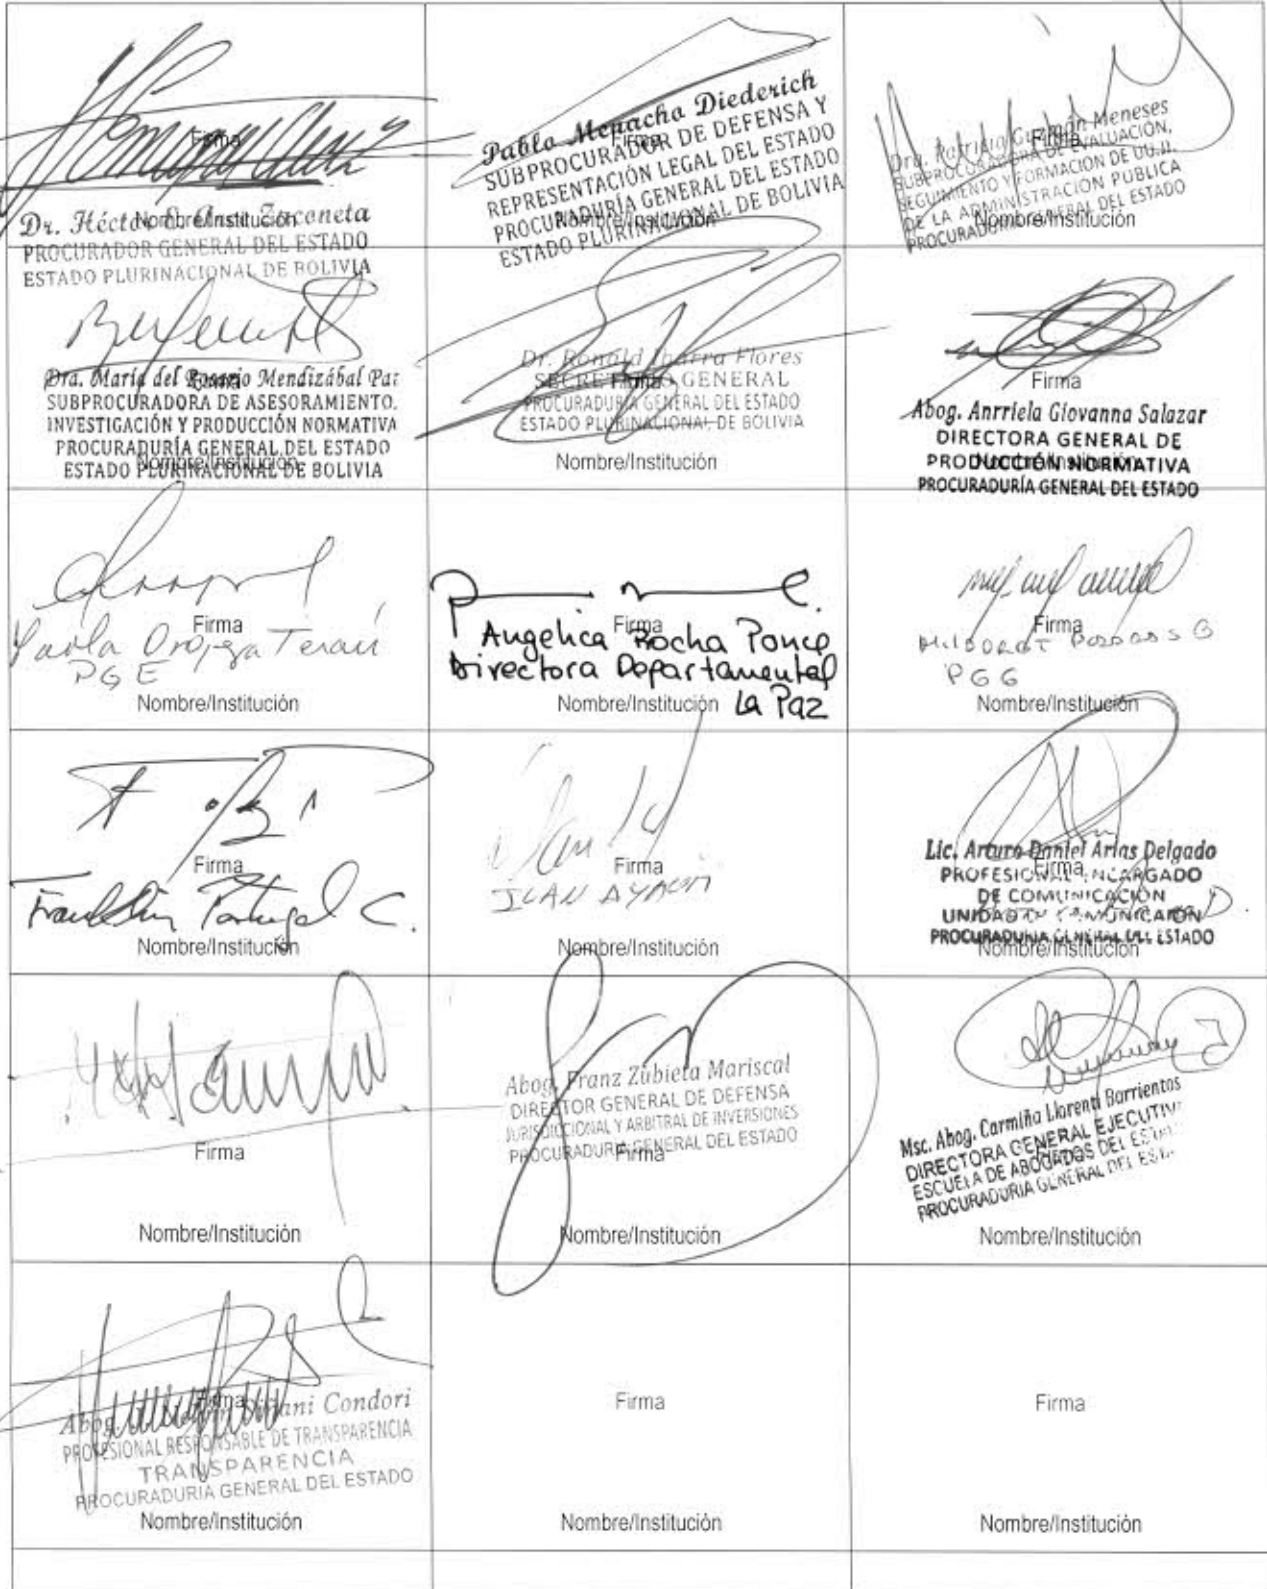 Firma
Dr. Héctor E. Arce Zaconeta
Nombre/Institución
PROCURADOR GENERAL DEL ESTADO
ESTADO PLURINACIONAL DE BOLIVIA
Pablo Menacho Diederich
Firma
SUBPROCURADOR DE DEFENSA Y
REPRESENTACIÓN LEGAL DEL ESTADO
PROCURADURÍA GENERAL DEL ESTADO
Nombre/Institución
ESTADO PLURINACIONAL DE BOLIVIA
Dra. Patricia Guzmán Meneses
Firma
SUBPROCURADORA DE EVALUACIÓN,
SEGUIMIENTO Y FORMACIÓN DE UU.JJ.
DE LA ADMINISTRACIÓN PÚBLICA
Nombre/Institución
PROCURADURÍA GENERAL DEL ESTADO
Dra. María del Rosario Mendizábal Paz
Firma
SUBPROCURADORA DE ASESORAMIENTO,
INVESTIGACIÓN Y PRODUCCIÓN NORMATIVA
PROCURADURÍA GENERAL DEL ESTADO
Nombre/Institución
ESTADO PLURINACIONAL DE BOLIVIA
Dr. Ronald Ibarra Flores
Firma
SECRETARIO GENERAL
PROCURADURÍA GENERAL DEL ESTADO
ESTADO PLURINACIONAL DE BOLIVIA
Nombre/Institución
Firma
Abog. Anrriela Giovanna Salazar
DIRECTORA GENERAL DE
PRODUCCIÓN NORMATIVA
Nombre/Institución
PROCURADURÍA GENERAL DEL ESTADO
Firma
Paola Oropeza Terán
PGE
Nombre/Institución
Firma
Angelica Rocha Ponce
Directora Departamental
La Paz
Nombre/Institución
Firma
Nombre/Institución
Firma
Franklin Portugal C.
Nombre/Institución
Firma
Nombre/Institución
Lic. Arturo Daniel Arias Delgado
Firma
PROFESIONAL ENCARGADO
DE COMUNICACIÓN
UNIDAD DE COMUNICAIÓN
PROCURADURIA GENERAL DEL ESTADO
Nombre/Institución
Firma
Nombre/Institución
Abog. Franz Zubieta Mariscal
DIRECTOR GENERAL DE DEFENSA
JURISDICCIONAL Y ARBITRAL DE INVERSIONES
PROCURADURÍA GENERAL DEL ESTADO
Firma
Nombre/Institución
Msc. Abog. Carmiña Llorenti Barrientos
DIRECTORA GENERAL EJECUTIV
Firma
ESCUELA DE ABOGADOS DEL ESTADO
PROCURADURIA GENERAL DEL EST
Nombre/Institución
Firma
Abog. Condori
PROFESIONAL RESPONSABLE DE TRANSPARENCIA
TRANSPARENCIA
PROCURADURIA GENERAL DEL ESTADO
Nombre/Institución
Firma
Nombre/Institución
Firma
Nombre/Institución